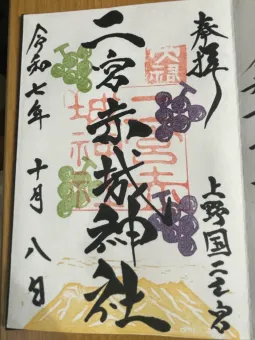 奉拝
上野国二之宮
二宮赤城神社
令和七年 十月 八日